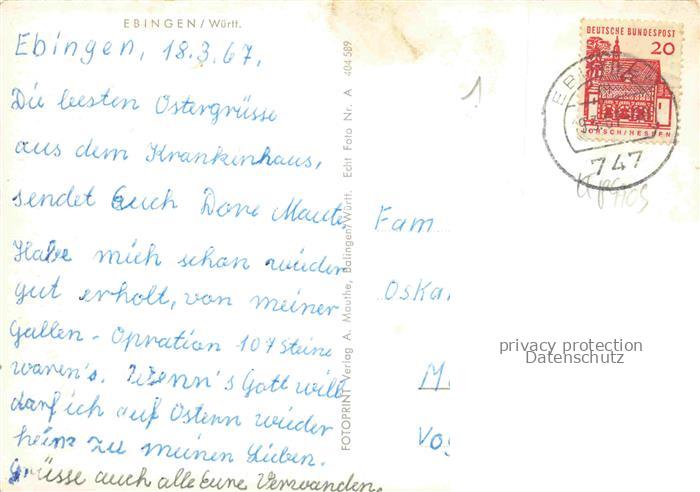 EBINGEN/Württ.
Ebingen, 18.3.67.
Die besten Ostergrüsse
aus dem Krankenhaus,
sendet Euch Dore Maute,
Habe mich schon wieder
gut erholt, von meiner
Gallen - Opration 107 Steine
waren's. Wenn's Gott will
darf ich auf Ostern wieder
heim zu meinen Lieben.
Grüsse auch alle Eure Verwanden.
FOTOPRINT Verlag A. Mauthe, Balingen/Württ. Echt Foto Nr. A 404 589
1
DEUTSCHE BUNDESPOST
20
LORSCH/HESSEN
EBINGEN
747
Fam
Oska
M
Vo
privacy protection
Datenschutz